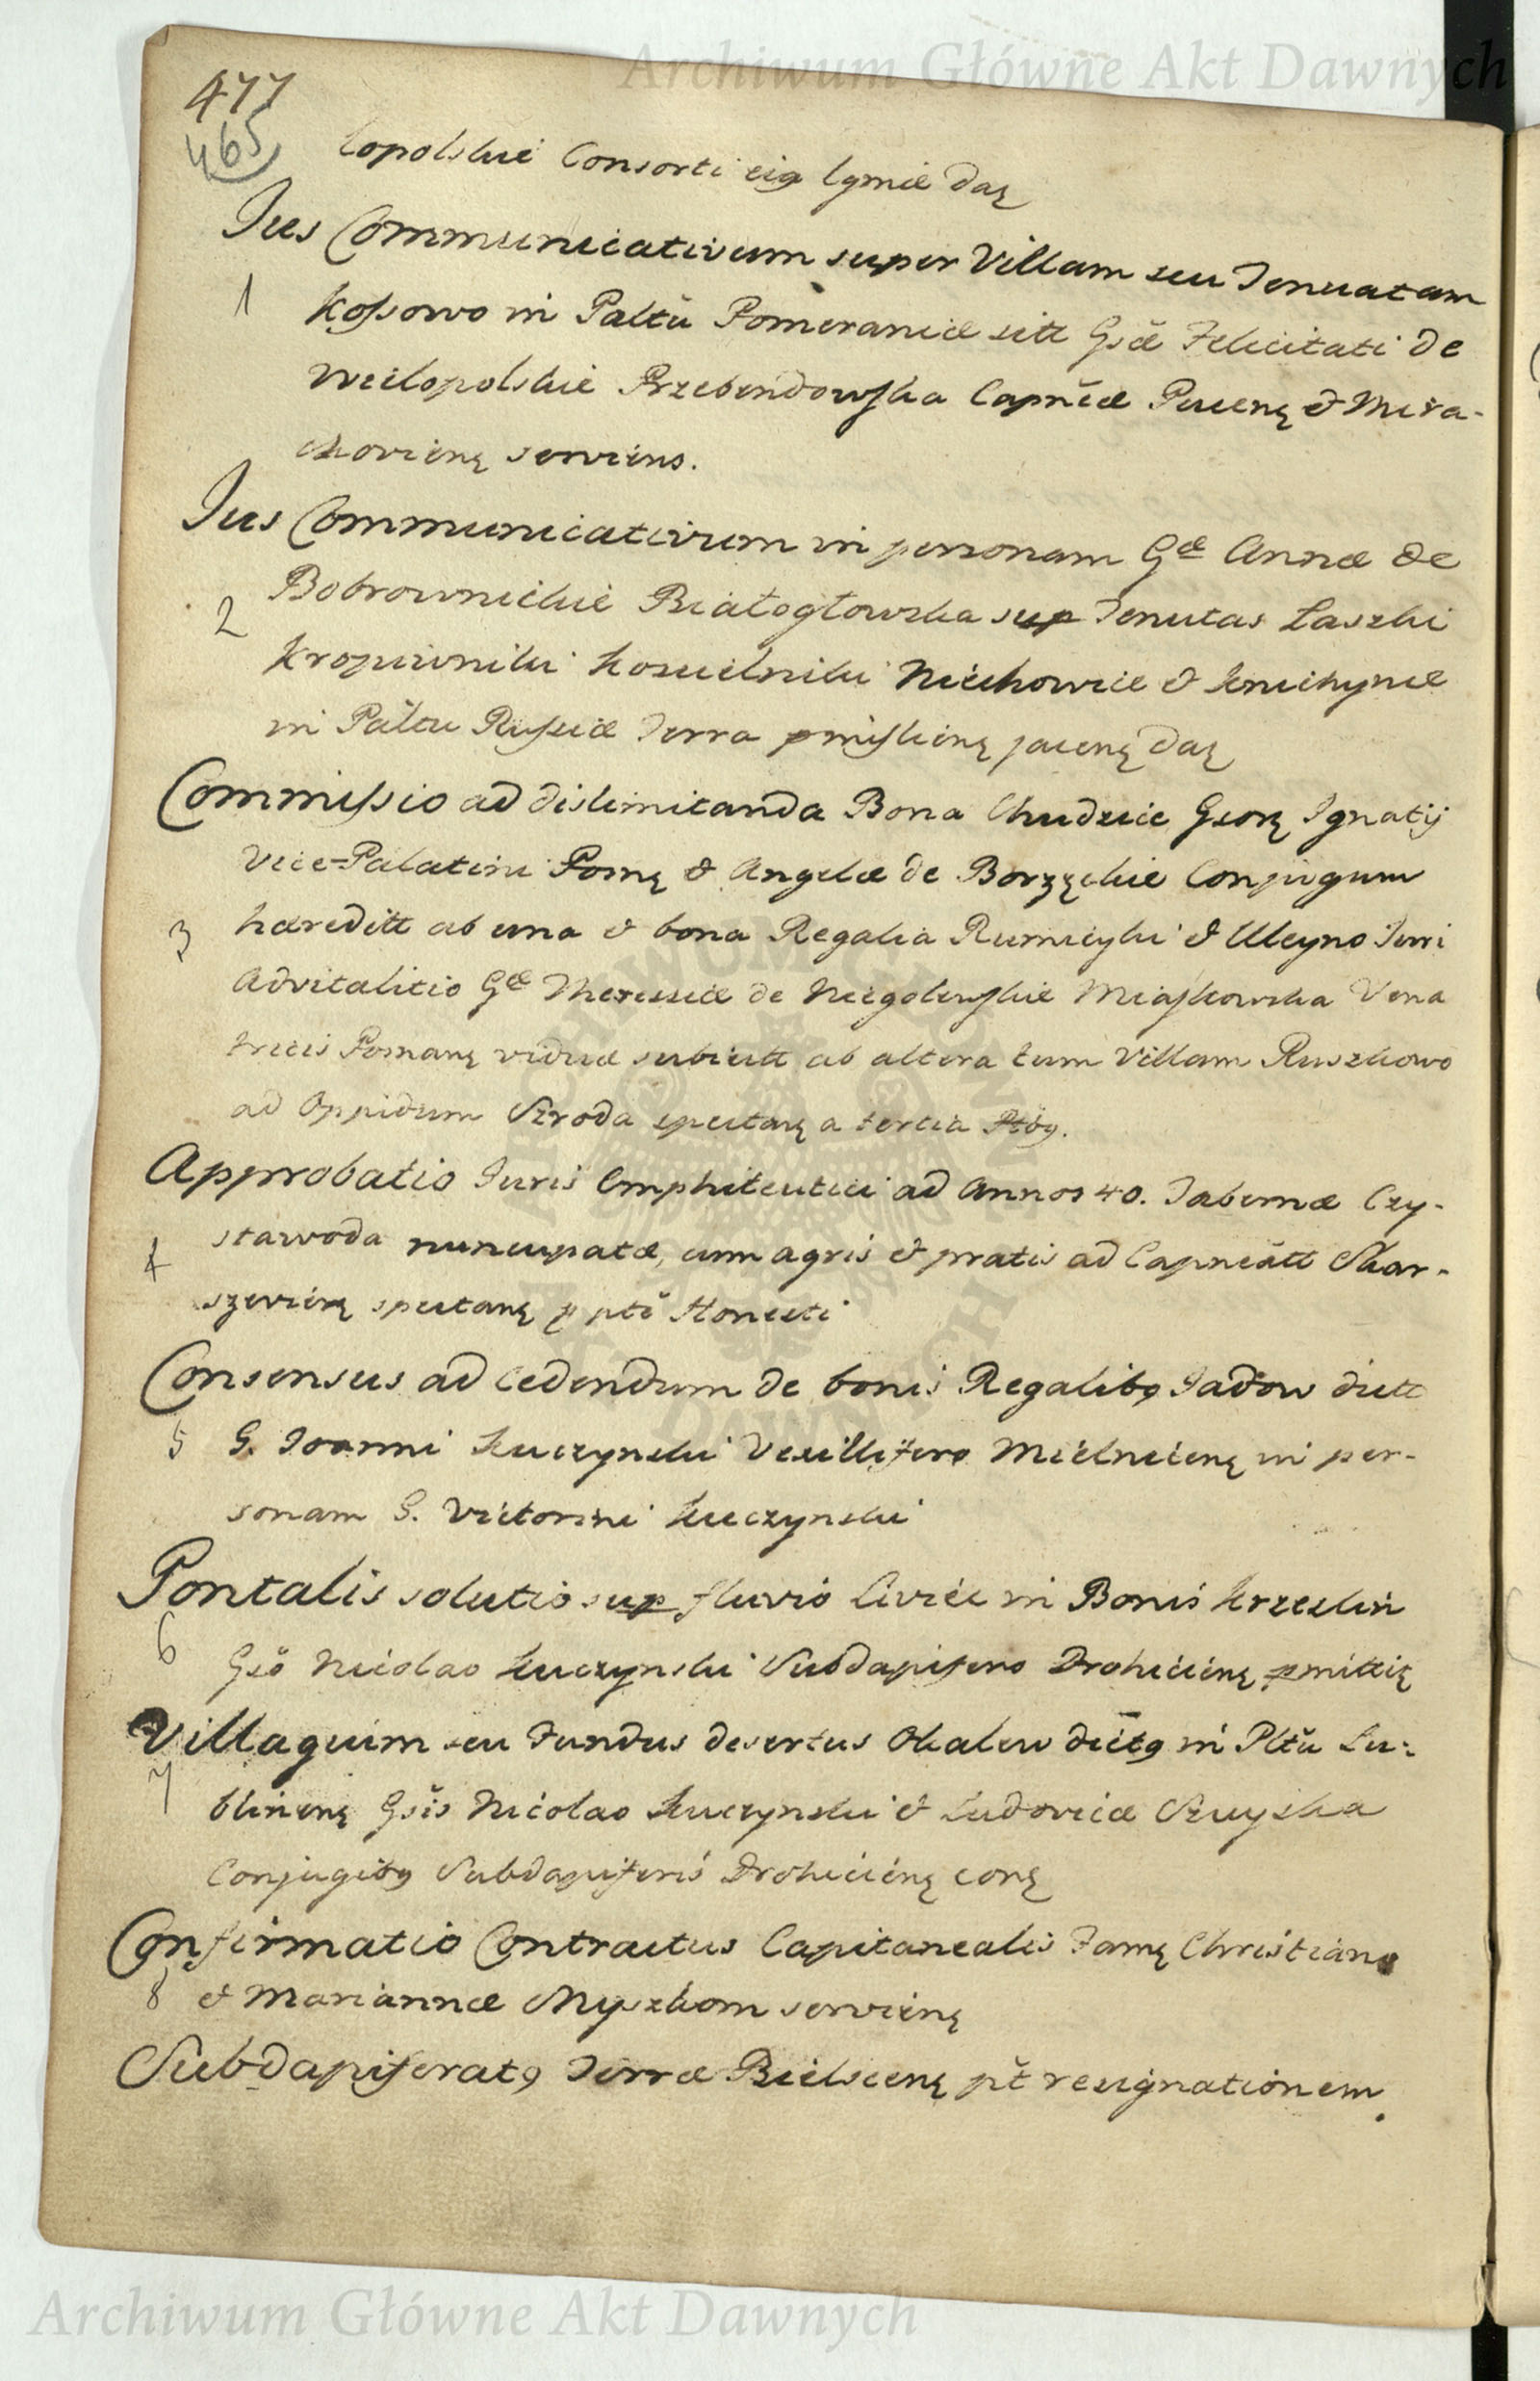 Archiwum Główne Akt Dawnych
477
465
lopolskie Consorti eiꝯ lgmie daꝫ
Jus Communicativum super Villam seu Tenuatam
1 Kossowo in Paltũ Pomeraniæ sitt Gsæ Felicitati de
Wielopolskie Przebendowska Capneæ Pucenꝫ & Mira-
chovienꝫ serviens.
Jus Communicativum in personam Gæ Annæ de
2 Bobrownickie Białogłowska sup Tenutas Laszki
Kropiwniki Koscielniki Niehowice & Kniehynie
in Paltu Russiæ Terra pmislienꝫ jacenꝫ daꝫ
Commissio ad dislimitanda Bona Chudzice Gsorꝫ Ignatij
Vice-Palatini Posnꝫ & Angelæ de Borzęckie Conjugum
3 hæreditt ab una & bona Regalia Rumieyki & Uleyno Juri
Advitalitio Gæ Theressiæ de Niegolewskie Miaskowska Vena
tricis Posnanꝫ viduæ subiectt ab altera tum Villam Ruszkowo
ad Oppidum Szroda spectanꝫ a tertia Ptibꝯ.
Approbatio Juris Emphiteutici ad Annos 40. Tabernæ Czy-
4 stawoda nuncupatæ, cum agris & pratis ad Capneatt Skar-
szevienꝫ spectanꝫ p ptẽ Honesti
Consensus ad cedendum de bonis Regalibꝯ Jadow dictt
5 G. Joanni Kuczynski Vexillifero Mielnicenꝫ in per-
sonam G. Victorini Kuczynski
Pontalis solutio sup fluvio Liviec in Bonis Krzeslin
6 Gsõ Nicolao Kuczynski Subdapifero Drohicienꝫ pmittiꝫ
Villagium seu Fundus desertus Okalew dictꝯ in Pltũ Lu-
7 blinenꝫ Gsis Nicolao Kuczynski & Ludovicæ Szuyska
Conjugibꝯ Subdapiferis Drohicienꝫ conꝫ
Confirmatio Contractus Capitanealis Famꝫ Christiano
8 & Mariannæ Myszkom servienꝫ
Subdapiferatꝯ Terræ Bielscenꝫ pt resignationem
Archiwum Główne Akt Dawnych